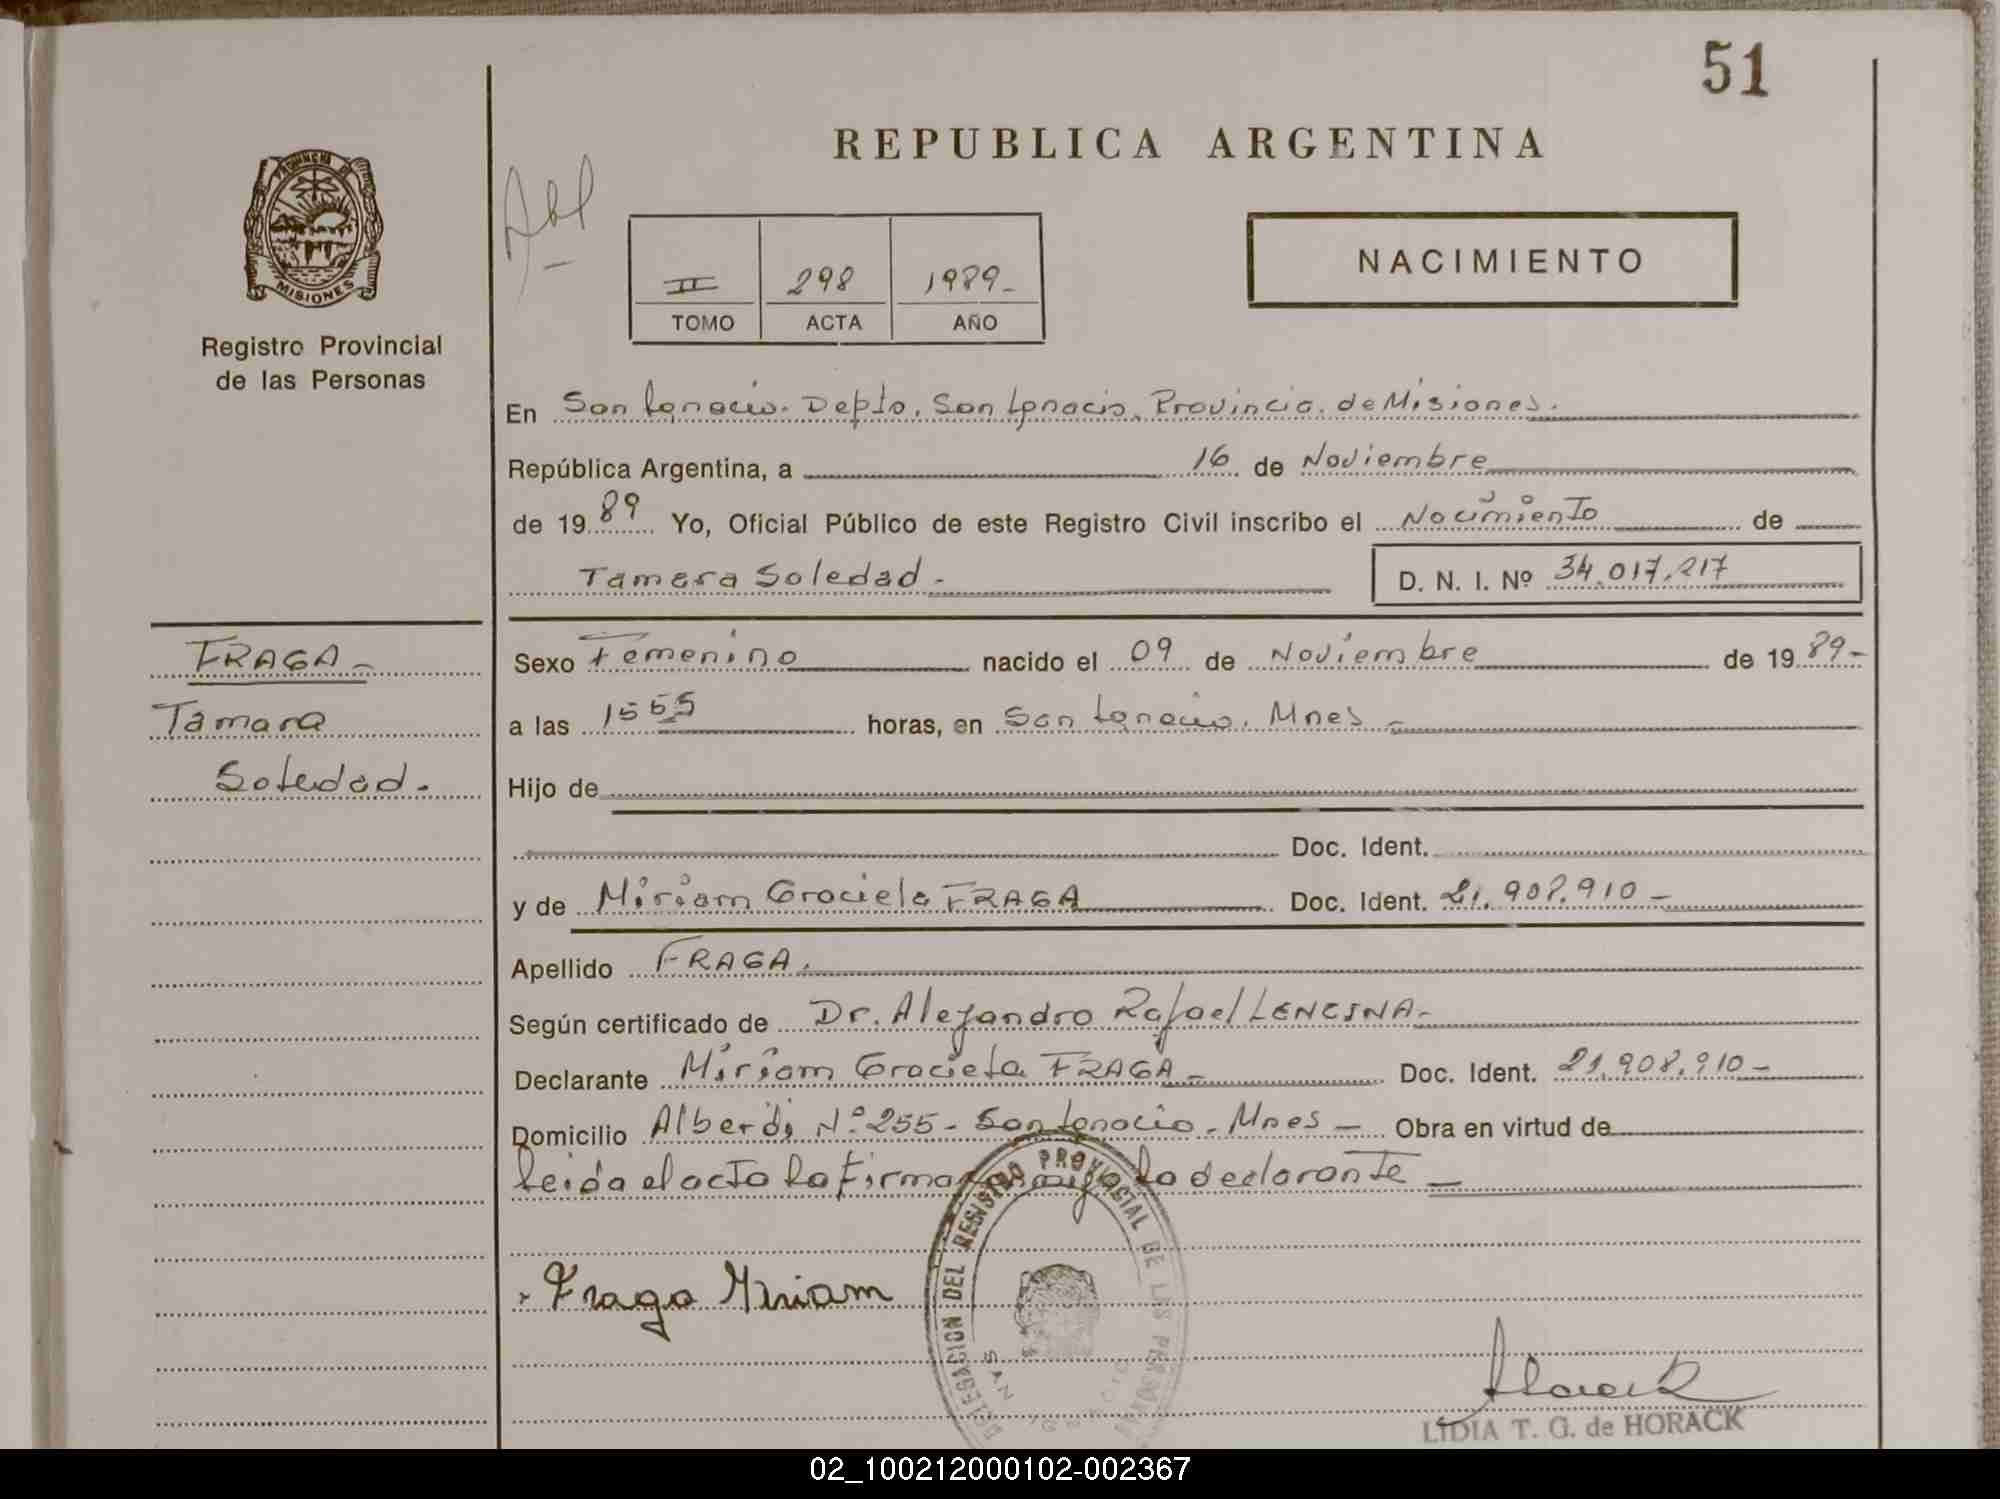 51
REPUBLICA ARGENTINA
PROVINCIA DE
MISIONES
Registro Provincial
de las Personas
II 298 1989-
TOMO ACTA AÑO
NACIMIENTO
En San Ignacio. Depto. San Ignacio, Provincia de Misiones.
República Argentina, a 16 de Noviembre
de 19 89 Yo, Oficial Público de este Registro Civil inscribo el Nacimiento de
Tamara Soledad.- D. N. I. Nº 34.017.217
FRAGA-
Tamara
Soledad.
Sexo Femenino nacido el 09 de Noviembre de 19 89-
a las 1555 horas, en San Ignacio. Mnes -
Hijo de
Doc. Ident.
y de Miriam Graciela FRAGA Doc. Ident. 21.908.910-
Apellido FRAGA.
Según certificado de Dr. Alejandro Rafael LENCINA-
Declarante Miriam Graciela FRAGA- Doc. Ident. 21.908.910-
Domicilio Alberdi Nº 255- San Ignacio- Mnes- Obra en virtud de
leida el acta la firma conmigo la declarante-
Fraga Miriam
DELEGACION DEL REGISTRO PROVINCIAL DE LAS PERSONAS
SAN IGNACIO
Horack
LIDIA T. G. de HORACK
02_100212000102-002367